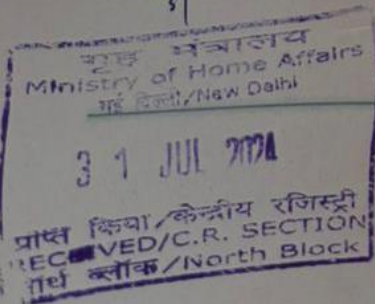 गृह मंत्रालय
Ministry of Home Affairs
नई दिल्ली/New Delhi
31 JUL 2024
प्राप्त किया/केन्द्रीय रजिस्ट्री
RECEIVED/C.R. SECTION
नार्थ ब्लॉक/North Block